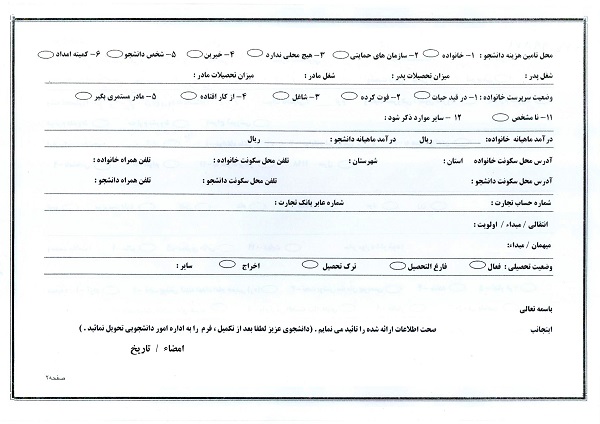 محل تامین هزینه دانشجو : ۱- خانواده ۲- سازمان های حمایتی ۳- هیچ محلی ندارد ۴- خیرین ۵- شخص دانشجو ۶- کمیته امداد
شغل پدر : میزان تحصیلات پدر : شغل مادر : میزان تحصیلات مادر :
وضعیت سرپرست خانواده : ۱- در قید حیات ۲- فوت کرده ۳- شاغل ۴- از کار افتاده ۵- مادر مستمری بگیر
۱۱- نا مشخص ۱۲ - سایر موارد ذکر شود :
درآمد ماهیانه خانواده: ____________ ریال درآمد ماهیانه دانشجو : ____________ ریال
آدرس محل سکونت خانواده استان : شهرستان : تلفن محل سکونت خانواده : تلفن همراه خانواده :
آدرس محل سکونت دانشجو : تلفن محل سکونت دانشجو : تلفن همراه دانشجو :
شماره حساب تجارت : شماره عابر بانک تجارت :
انتقالی / مبداء / اولویت :
میهمان / مبداء:
وضعیت تحصیلی : فعال فارغ التحصیل ترک تحصیل اخراج سایر :
باسمه تعالی
اینجانب صحت اطلاعات ارائه شده را تائید می نمایم . (دانشجوی عزیز لطفا بعد از تکمیل ، فرم را به اداره امور دانشجویی تحویل نمائید . )
امضاء / تاریخ
صفحه۲